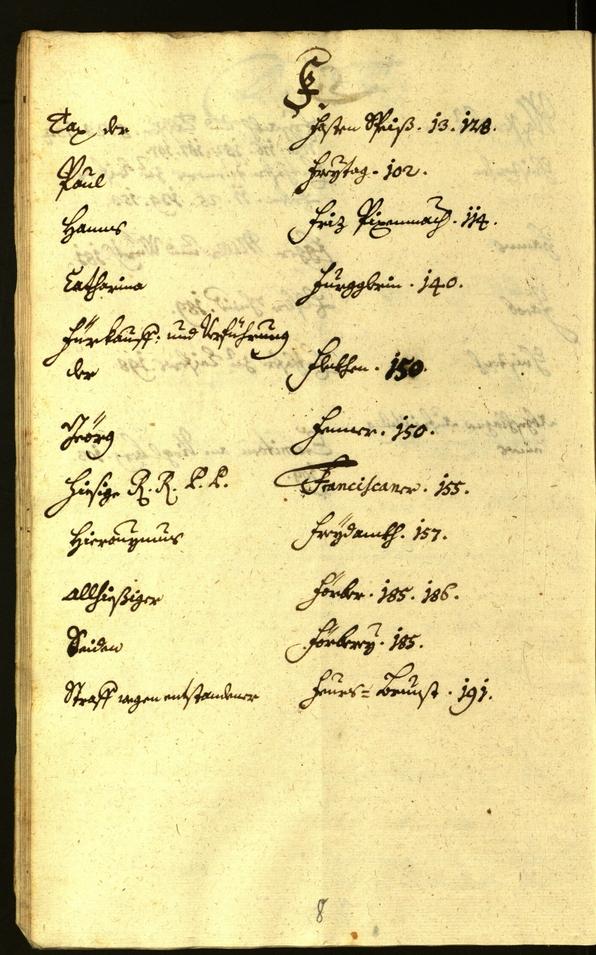 F.
Tax der Fasten Speiß. 13. 128.
Paul Freytag. 102.
Hanns Friz Pixenmach. 114.
Catharina Fürggbrin. 140.
Fürkauff: und Verführung
der Flethen. 150.
Jeörg Femer. 150.
Hiesige R. R. P. P. Franciscaner. 155.
Hieronymus Freydamkh. 157.
Allhießiger Förber. 185. 186.
Seiden Förberey. 185.
Straff wegen entstandener Feurs=Brunst. 191.
8